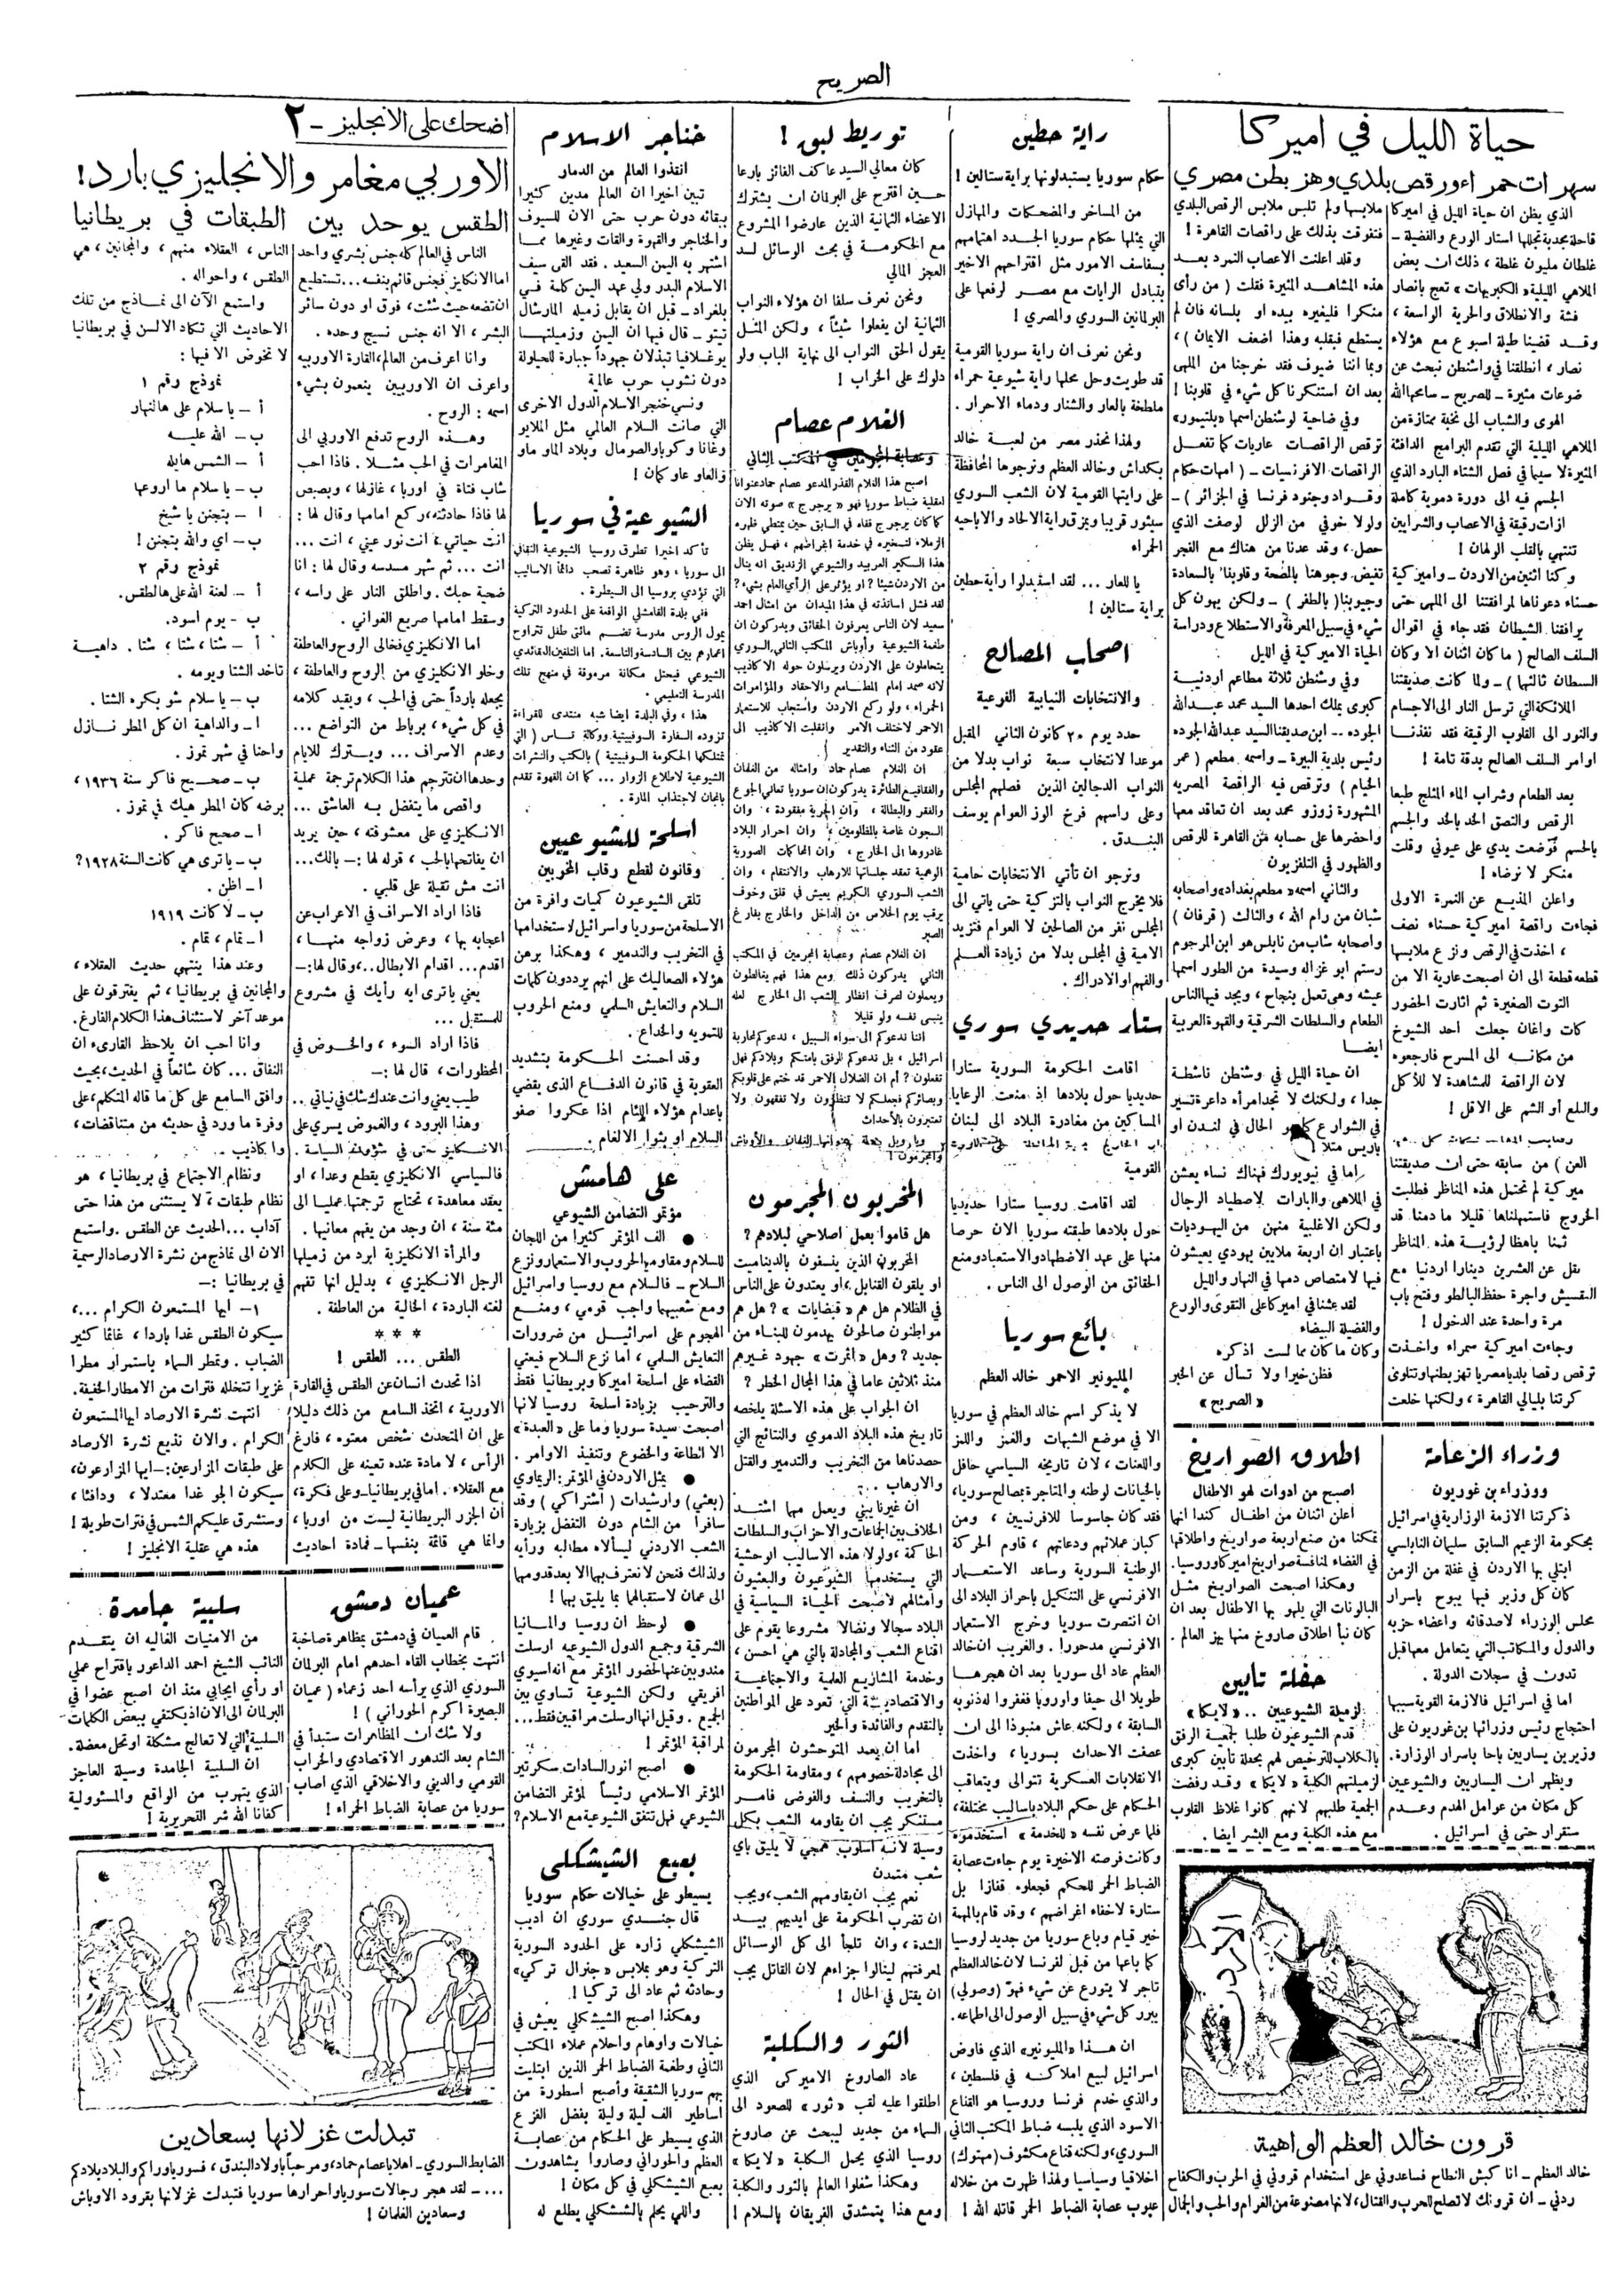 الصريح
حياة الليل في اميركا
سهرات حمراء ورقص بلدي وهز بطن مصري
الذي يظن ان حياة الليل في اميركا
قاحلة مجدبة تجللها استار الورع والفضيلة -
غلطان مليون غلطة ، ذلك ان بعض
الملاهي الليلية «الكبريهات» تعج بانصار
فئة والانطلاق والحرية الواسعة ،
وقد قضينا طيلة اسبوع مع هؤلاء
نصار ، انطلقنا في واشنطن نبحث عن
ضوعات مثيرة - للصريح - سامحها الله
الهوى والشباب الى نخبة ممتازة من
الملاهي الليلية التي تقدم البرامج الدافئة
المثيرة لا سيما في فصل الشتاء البارد الذي
الجسم فيه الى دورة دموية كاملة
ازات رقيقة في الاعصاب والشرايين
تنتهي بالقلب الولهان !
وكنا اثنين من الاردن - واميركية
حسناء دعوناها لمرافقتنا الى الملهى حتى
يرافقنا الشيطان فقد جاء في اقوال
السلف الصالح ( ما كان اثنان الا وكان
السطان ثالثها ) - ولما كانت صديقتنا
الملائكة التي ترسل النار الى الاجسام
والنور الى القلوب الرقيقة فقد نفذنا
اوامر السلف الصالح بدقة تامة !
بعد الطعام وشراب الماء المثلج طبعا
الرقص والتصق الخد بالخد والجسم
بالجسم فوضعت يدي على عيوني وقلت
منكر لا نرضاه !
واعلن المذيع عن النمرة الاولى
فجاءت راقصة اميركية حسناء نصف
، اخذت في الرقص ونزع ملابسها
قطعه قطعة الى ان اصبحت عارية الا من
التوت الصغيرة ثم اثارت الحضور
كات واغان جعلت احد الشيوخ
من مكانه الى المسرح فارجعوه
لان الراقصة للمشاهدة لا للأكل
والبلع أو الشم على الاقل !
العن ) من سابقه حتى ان صديقتنا
ميركية لم تحتمل هذه المناظر فطلبت
الخروج فاستمهلناها قليلا ما دمنا قد
ثمنا باهظا لرؤية هذه المناظر
يقل عن العشرين دينارا اردنيا مع
البقشيش واجرة حفظ البالطو وفتح باب
مرة واحدة عند الدخول !
وجاءت اميركية سمراء واخذت
ترقص رقصا بلديا مصريا تهز بطنها وتتلوى
كرتنا بليالي القاهرة ، ولكنها خلعت
ملابسها ولم تلبس ملابس الرقص البلدي
فتفوقت بذلك على راقصات القاهرة !
وقد اعلنت الاعصاب التمرد بعد
هذه المشاهد المثيرة فقلت ( من رأى
منكرا فليغيره بيده او بلسانه فان لم
يستطع فبقلبه وهذا اضعف الايمان ) ،
وبما أننا ضيوف فقد خرجنا من الملهى
بعد ان استنكرنا كل شيء في قلوبنا !
وفي ضاحية لوشنطن اسمها «بلتيمور»
ترقص الراقصات عاريات كما تفعل
الراقصات الافرنسيات - ( امهات حكام
وقواد وجنود فرنسا في الجزائر ) -
ولولا خوفي من الزلل لوصفت الذي
حصل ، وقد عدنا من هناك مع الفجر
تفيض وجوهنا بالصحة وقلوبنا بالسعادة
وجيوبنا ( بالطفر ) - ولكن يهون كل
شيء في سبيل المعرفة والاستطلاع ودراسة
الحياة الاميركية في الليل
وفي وشنطن ثلاثة مطاعم اردنية
كبرى يملك احدها السيد محمد عبد الله
الجوده -- ابن صديقنا السيد عبدالله الجوده
رئيس بلدية البيرة - واسمه مطعم ( عمر
الخيام ) وترقص فيه الراقصة المصريه
المشهورة زوزو محمد بعد ان تعاقد معها
واحضرها على حسابه من القاهرة للرقص
والظهور في التلفزيون
والثاني اسمه « مطعم بغداد» واصحابه
شبان من رام الله ، والثالث ( قرفان )
واصحابه شاب من نابلس هو ابن المرجوم
رستم ابو غزاله وسيدة من الطور اسمها
عيشه وهي تعمل بنجاح ، ويجد فيها الناس
الطعام والسلطات الشرقية والقهوة العربية
ايضا
ان حياة الليل في وشنطن ناشطة
جدا ، ولكنك لا تجد امرأه داعرة تسير
في الشوارع كما هو الحال في لندن او
باريس مثلا !
اما في نيويورك فهناك نساء يعشن
في الملاهي والبارات لاصطياد الرجال
ولكن الاغلبية منهن من اليهوديات
باعتبار ان اربعة ملايين يهودي يعيشون
فيها لامتصاص دمها في النهار والليل
لقد عشنا في اميركا على التقوى والورع
والفضيلة البيضاء
وكان ما كان مما لست اذكره
فظن خيرا ولا تسأل عن الخبر
« الصريح »
وزراء الزعامة
ووزراء بن غوريون
ذكرتنا الازمة الوزارية في اسرائيل
بحكومة الزعيم السابق سليمان النابلسي
ابتلي بها الاردن في غفلة من الزمن
كان كل وزير فيها يبوح باسرار
مجلس الوزراء لاصدقائه واعضاء حزبه
والدول والمكاتب التي يتعامل معها قبل
تدون في سجلات الدولة .
اما في اسرائيل فالازمة القوية سببها
احتجاج رئيس وزرائها بن غوريون على
وزيرين يساريين باحا باسرار الوزارة.
ويظهر ان اليساريين والشيوعيين
كل مكان من عوامل الهدم وعدم
ستقرار حتى في اسرائيل .
اطلاق الصواريخ
اصبح من ادوات لهو الاطفال
أعلن اثنان من اطفال كندا انها
تمكنا من صنع اربعة صواريخ واطلاقها
في الفضاء لمنافسة صواريخ اميركا وروسيا.
وهكذا اصبحت الصواريخ مثل
البالونات التي يلهو بها الاطفال بعد ان
كان نبأ اطلاق صاروخ منها يهز العالم .
حفلة تابين
لزميلة الشيوعيين .. « لايكا »
قدم الشيوعيون طلبا لجمعية الرفق
بالكلاب للترخيص لهم بحفلة تأبين كبرى
لزميلتهم الكلبة « لايكا » وقد رفضت
الجمعية طلبهم لانهم كانوا غلاظ القلوب
مع هذه الكلبة ومع البشر ايضا .
الاردن
قرون خالد العظم الواهية
خالد العظم - انا كبش النطاح فساعدوني على استخدام قروني في الحرب والكفاح
ردني - ان قرونك لا تصلح للحرب والقتال ، لانها مصنوعة من الغرام والحب والجمال
راية حطين
حكام سوريا يستبدلونها براية ستالين !
من المساخر والمضحكات والمهازل
التي يمثلها حكام سوريا الجدد اهتمامهم
بسفاسف الامور مثل اقتراحهم الاخير
بتبادل الرايات مع مصر لرفعها على
البرلمانين السوري والمصري !
ونحن نعرف ان راية سوريا القومية
قد طويت وحل محلها راية شيوعية حمراء
ملطخة بالعار والشنار ودماء الاحرار .
ولهذا نحذر مصر من لعبة خالد
بكداش وخالد العظم ونرجوها المحافظة
على رايتها القومية لان الشعب السوري
سيثور قريبا ويمزق راية الالحاد والاباحيه
الحمراء
يا للعار ... لقد استبدلوا راية حطين
براية ستالين !
اصحاب المصالح
والانتخابات النيابية الفرعية
حدد يوم ٢٠ كانون الثاني المقبل
موعدا لانتخاب سبعة نواب بدلا من
النواب الدجالين الذين فصلهم المجلس
وعلى راسهم فرخ الوز العوام يوسف
البندق .
ونرجو ان تأتي الانتخابات حامية
فلا يخرج النواب بالتزكية حتى ياتي الى
المجلس نفر من الصالحين لا العوام فتزيد
الامية في المجلس بدلا من زيادة العلم
والفهم او الادراك .
ستار حديدي سوري
اقامت الحكومة السورية ستارا
حديديا حول بلادها اذ منعت الرعايا
المساكين من مغادرة البلاد الى لبنان
القومية
لقد اقامت روسيا ستارا حديديا
حول بلادها طبقته سوريا الان حرصا
منها على عهد الاضطهاد والاستعباد ومنع
الحقائق من الوصول الى الناس .
بائع سوريا
المليونير الاحمر خالد العظم
لا يذكر اسم خالد العظم في سوريا
الا في موضع الشبهات والغمز واللمز
واللعنات ، لان تاريخه السياسي حافل
بالخيانات لوطنه والمتاجرة بمصالح سوريا،
فقد كان جاسوسا للافرنسيين ، ومن
كبار عملائهم ودعاتهم ، قاوم الحركة
الوطنية السورية وساعد الاستعمار
الافرنسي على التنكيل باحرار البلاد الى
ان انتصرت سوريا وخرج الاستعمار
الافرنسي مدحورا . والغريب ان خالد
العظم عاد الى سوريا بعد ان هجرها
طويلا الى حيفا واوروبا فغفروا له ذنوبه
السابقة ، ولكنه عاش منبوذا الى ان
عصفت الاحداث بسوريا ، واخذت
الانقلابات العسكرية تتوالى ويتعاقب
الحكام على حكم البلاد باساليب مختلفة ،
فلما عرض نفسه « للخدمة » استخدموه
وكانت فرصته الاخيرة يوم جاءت عصابة
الضباط الحمر للحكم فجعلوه قفازا بل
ستارة لاخفاء اغراضهم ، وقد قام بالمهمة
خير قيام وباع سوريا من جديد لروسيا
كما باعها من قبل لفرنسا لان خالد العظم
تاجر لا يتورع عن شيء فهو (وصولي)
يبرر كل شيء في سبيل الوصول الى اطماعه.
ان هذا «المليونير» الذي فاوض
اسرائيل لبيع املاكه في فلسطين ،
والذي خدم فرنسا وروسيا هو القناع
الاسود الذي يلبسه ضباط المكتب الثاني
السوري، ولكنه قناع مكشوف (مهتوك)
اخلاقيا وسياسيا ولهذا ظهرت من خلاله
عيوب عصابة الضباط الحمر قاتله الله !
توريط لبق !
كان معالي السيد عاكف الفائز بارعا
حسين اقترح على البرلمان ان يشترك
الاعضاء الثمانية الذين عارضوا المشروع
مع الحكومة في بحث الوسائل لسد
العجز المالي
ونحن نعرف سلفا ان هؤلاء النواب
الثمانية لن يفعلوا شيئا ، ولكن المثل
يقول الحق النواب الى نهاية الباب ولو
دلوك على الخراب !
الغلام عصام
وعصابة المجرمين في المكتب الثاني
اصبح هذا الغلام القذر المدعو عصام حماد عنوانا
لعقلية ضباط سوريا فهو « يرجرج » صوته الان
كما كان يرجرج قفاه في السابق حين يمتطي ظهره
الزملاء لتسخيره في خدمة اغراضهم ، فهل يظن
هذا السكير العربيد والشيوعي الزنديق انه ينال
من الاردن شيئا ؟ او يؤثر على الرأي العام بشيء ؟
لقد فشل اساتذته في هذا الميدان من امثال احمد
سعيد لان الناس يعرفون الحقائق ويدركون ان
طغمة الشيوعية وأوباش المكتب الثاني السوري
يتحاملون على الاردن ويرسلون حوله الاكاذيب
لانه صمد امام المطامع والاحقاد والمؤامرات
الحمراء ، ولو ركع الاردن وأستجاب للاستعمار
الاحمر لاختلف الامر وانقلبت الاكاذيب الى
عقود من الثناء والتقدير
ان الغلام عصام حماد وامثاله من الغلمان
والفقاقيع الطائرة يدركون ان سوريا تعاني الجوع
والفقر والبطالة ، وان الحرية مفقودة ، وان
السجون غاصة بالمظلومين ، وان احرار البلاد
غادروها الى الخارج ، وان المحاكمات الصورية
الوهمية تعقد جلساتها للارهاب والانتقام ، وان
الشعب السوري الكريم يعيش في قلق وخوف
يرقب يوم الخلاص من الداخل والخارج بفارغ
الصبر
ان الغلام عصام وعصابة المجرمين في المكتب
الثاني يدركون ذلك ومع هذا فهم يغالطون
ويعملون لصرف انظار الشعب الى الخارج لعله
ينسى نفسه ولو قليلا
اننا ندعوكم الى سواء السبيل ، ندعوكم لمحاربة
اسرائيل ، بل ندعوكم الرفق بامتكم وبلادكم فهل
تفعلون ؟ أم ان الضلال الاحمر قد ختم على قلوبكم
وبصائركم فجعلكم لا تنظرون ولا تفقهون ولا
تعتبرون بالأحداث
ايها الغلمان والأوباش
والمجرمون !
المخربون المجرمون
هل قاموا بعمل اصلاحي لبلادهم ؟
المخربون الذين ينسفون بالديناميت
او يلقون القنابل ، او يعتدون على الناس
في الظلام هل هم « قبضايات » ؟ هل هم
مواطنون صالحون يهدمون للبناء من
جديد ؟ وهل « اثمرت » جهود غيرهم
منذ ثلاثين عاما في هذا المجال الخطر ؟
ان الجواب على هذه الاسئلة يلخصه
تاريخ هذه البلاد الدموي والنتائج التي
حصدناها من التخريب والتدمير والقتل
والارهاب .
ان غيرنا يبني ويعمل مهما اشتد
الخلاف بين الجماعات والاحزاب والسلطات
الحاكمة ، ولولا هذه الاساليب الوحشية
التي يستخدمها الشيوعيون والبعثيون
وامثالهم لأصبحت الحياة السياسية في
البلاد سجالا ونضالا مشروعا يقوم على
اقناع الشعب والمجادلة بالتي هي احسن ،
وخدمة المشاريع العلمية والاجتماعية
والاقتصادية التي تعود على المواطنين
بالتقدم والفائدة والخير
اما ان يعمد المتوحشون المجرمون
الى مجادلة خصومهم ، ومقاومة الحكومة
بالتخريب والنسف والفوضى فامر
مستنكر يجب ان يقاومه الشعب بكل
وسيلة لأنه أسلوب همجي لا يليق باي
شعب متمدن
نعم يجب ان يقاومهم الشعب ، ويجب
ان تضرب الحكومة على ايديهم بيد
الشدة ، وان تلجأ الى كل الوسائل
لمعرفتهم لينالوا جزاءهم لان القاتل يجب
ان يقتل في الحال !
الثور والكلبة
عاد الصاروخ الاميركي الذي
اطلقوا عليه لقب « ثور » للصعود الى
السماء من جديد ليبحث عن صاروخ
روسيا الذي يحمل الكلبة « لايكا »
وهكذا شغلوا العالم بالثور والكلبة
ومع هذا يتمشدق الفريقان بالسلام !
خناجر الاسلام
انقذوا العالم من الدمار
تبين اخيرا ان العالم مدين كثيرا
ببقائه دون حرب حتى الان للسيوف
والخناجر والقهوة والقات وغيرها مما
اشتهر به اليمن السعيد . فقد القى سيف
الاسلام البدر ولي عهد اليمن كلمة في
بلغراد - قبل ان يقابل زميله المارشال
تيتو - قال فيها ان اليمن وزميلتها
يوغسلافيا تبذلان جهوداً جبارة للحيلولة
دون نشوب حرب عالمية
ونسي خنجر الاسلام الدول الاخرى
التي صانت السلام العالمي مثل الملايو
وغانا وكوبا والصومال وبلاد الماو ماو
والعاو عاو كمان !
الشيوعية في سوريا
تأكد اخيرا تطرق روسيا الشيوعية الثقافي
الى سوريا ، وهو ظاهرة تصحب دائما الاساليب
التي تؤدي بروسيا الى السيطرة .
ففي بلدة القامشلي الواقعة على الحدود التركية
يمول الروس مدرسة تضم مائتي طفل تتراوح
اعمارهم بين السادسة والتاسعة. اما التلقين العقائدي
الشيوعي فيحتل مكانة مرموقة في منهج تلك
المدرسة التعليمي .
هذا ، وفي البلدة ايضا شبه منتدى للقراءة
تزوده السفارة السوفييتية ووكالة تاس ( التي
تمتلكها الحكومة السوفيتية ) بالكتب والنشرات
الشيوعية لاطلاع الزوار ... كما ان القهوة تقدم
بالمجان لاجتذاب المارة .
اسلحة للشيوعيين
وقانون لقطع رقاب المخربين
تلقى الشيوعيون كميات وافرة من
الاسلحة من سوريا واسرائيل لاستخدامها
في التخريب والتدمير ، وهكذا برهن
هؤلاء الصعاليك على انهم يرددون كلمات
السلام والتعايش السلمي ومنع الحروب
للتمويه والخداع .
وقد احسنت الحكومة بتشديد
العقوبة في قانون الدفاع الذي يقضي
باعدام هؤلاء اللئام اذا عكروا صفو
السلام او بثوا الالغام .
على هامش
مؤتمر التضامن الشيوعي
● الف المؤتمر كثيرا من اللجان
للسلام ومقاومة الحروب والاستعمار ونزع
السلاح - فالسلام مع روسيا واسرائيل
ومع شعبيهما واجب قومي ، ومنع
الهجوم على اسرائيل من ضرورات
التعايش السلمي ، اما نزع السلاح فيعني
القضاء على اسلحة اميركا وبريطانيا فقط
والترحيب بزيادة اسلحة روسيا لانها
اصبحت سيدة سوريا وما على « العبدة »
الا الطاعة والخضوع وتنفيذ الاوامر .
● يمثل الاردن في المؤتمر : الريماوي
(بعثي) وارشيدات ( اشتراكي ) وقد
سافرا من الشام دون التفضل بزيارة
الشعب الاردني ليسألاه مطالبه ورأيه
ولذلك فنحن لا نعترف بهما الا بعد قدومها
الى عمان لاستقبالهما بما يليق بهما !
● لوحظ ان روسيا والمانيا
الشرقية وجميع الدول الشيوعية ارسلت
مندوبين عنها لحضور المؤتمر مع انه اسيوي
افريقي ولكن الشيوعية تساوي بين
الجميع . وقيل انها ارسلت مراقبين فقط ...
لمراقبة المؤتمر !
● اصبح انور السادات سكرتير
المؤتمر الاسلامي رئيسا لمؤتمر التضامن
الشيوعي فهل تتفق الشيوعية مع الاسلام؟
بعبع الشيشكلي
يسيطر على خيالات حكام سوريا
قال جندي سوري ان اديب
الشيشكلي زاره على الحدود السورية
التركية وهو بملابس «جنرال تركي»
وحادثه ثم عاد الى تركيا !
وهكذا اصبح الشيشكلي يعيش في
خيالات واوهام واحلام عملاء المكتب
الثاني وطغمة الضباط الحمر الذين ابتليت
بهم سوريا الشقيقة وأصبح اسطورة من
اساطير الف ليلة وليلة بفضل الفزع
الذي يسيطر على الحكام من عصابة
العظم والحوراني وصاروا يشاهدون
بعبع الشيشكلي في كل مكان !
واللي يحلم بالششكلي يطلع له
اضحك على الانجليز - ٢
الاوربي مغامر والانجليزي بارد !
الطقس يوحد بين الطبقات في بريطانيا
الناس في العالم كله جنس بشري واحد
اما الانكليز فجنس قائم بنفسه ... تستطيع
ان تضعه حيث شئت ، فوق او دون سائر
البشر ، الا انه جنس نسيج وحده .
وانا اعرف من العالم ، القارة الاوربيه
واعرف ان الاوربيين ينعمون بشيء
اسمه : الروح .
وهذه الروح تدفع الاوربي الى
المغامرات في الحب مثلا . فاذا احب
شاب فتاة في اوربا ، غازلها ، وبصبص
لها فاذا حادثته ، ركع امامها وقال لها :
انت حياتي ، انت نور عيني ، انت ...
انت ... ثم شهر مسدسه وقال لها : انا
ضحية حبك . واطلق النار على راسه ،
وسقط امامها صريع الغواني .
اما الانكليزي فخالي الروح والعاطفة
وخلو الانكليزي من الروح والعاطفة ،
يجعله بارداً حتى في الحب ، ويقيد كلامه
في كل شيء ، برباط من التواضع ...
وعدم الاسراف ... ويترك للايام
وحدها ان تترجم هذا الكلام ترجمة عملية
واقصى ما يتفضل به العاشق ...
الانكليزي على معشوقته ، حين يريد
ان يفاتحها بالحب ، قوله لها : - يالك ...
انت مش ثقيلة على قلبي .
فاذا اراد الاسراف في الاعراب عن
اعجابه بها ، وعرض زواجه منها ،
اقدم ... اقدام الابطال .. ، وقال لها : -
يعني يا ترى ايه رأيك في مشروع
للمستقبل ...
فاذا اراد السوء ، والخوض في
المحظورات ، قال لها : -
طيب يعني وانت عندك شك في نياتي ..
وهذا البرود ، والغموض يسري على
الانكليز حتى في شؤون السياسة .
فالسياسي الانكليزي يقطع وعدا ، او
يعقد معاهدة ، تحتاج ترجمتها عمليا الى
مئة سنة ، ان وجد من يفهم معانيها .
والمرأة الانكليزية ابرد من زميلها
الرجل الانكليزي ، بدليل انها تفهم
لغته الباردة ، الخالية من العاطفة .
* * *
الطقس ... الطقس !
اذا تحدث انسان عن الطقس في القارة
الاوربية ، اتخذ السامع من ذلك دليلا
على ان المتحدث شخص معتوه ، فارغ
الرأس ، لا مادة عنده تعينه على الكلام
مع العقلاء . اما في بريطانيا - وعلى فكرة ،
أن الجزر البريطانية ليست من اوربا ،
وانما هي قائمة بنفسها - فمادة احاديث
الناس ، العقلاء منهم ، والمجانين ، هي
الطقس ، واحواله .
واستمع الآن الى نماذج من تلك
الاحاديث التي تكاد الالسن في بريطانيا
لا تخوض الا فيها :
نموذج رقم ١
أ - يا سلام على هالنهار
ب - الله عليه
أ - الشمس هايله
ب - يا سلام ما اروعها
ا - بتجنن يا شيخ
ب - اي والله بتجنن !
نموذج رقم ٢
أ - لعنة الله على هالطقس .
ب - يوم اسود .
أ - شتا ، شتا ، شتا . داهية
تاخد الشتا ويومه .
ب - يا سلام شو بكره الشتا .
ا - والداهية ان كل المطر نازل
واحنا في شهر تموز .
ب - صحيح فاكر سنة ١٩٣٦ ،
برضه كان المطر هيك في تموز .
ا - صحيح فاكر .
ب - يا ترى هي كانت السنة ١٩٢٨ ؟
ا - اظن .
ب - لا كانت ١٩١٩
ا - تمام ، تمام .
وعند هذا ينتهي حديث العقلاء ،
والمجانين في بريطانيا ، ثم يفترقون على
موعد آخر لاستئناف هذا الكلام الفارغ .
وانا احب ان يلاحظ القارىء ان
النفاق ... كان سائغاً في الحديث ، بحيث
وافق السامع على كل ما قاله المتكلم ، على
وفرة ما ورد في حديثه من متناقضات ،
واكاذيب ...
ونظام الاجتماع في بريطانيا ، هو
نظام طبقات ، لا يستثنى من هذا حتى
آداب ... الحديث عن الطقس . واستمع
الان الى نماذج من نشرة الارصاد الرسمية
في بريطانيا : -
١ - ايها المستمعون الكرام ... ،
سيكون الطقس غدا باردا ، غائما كثير
الضباب . وتمطر السماء باستمرار مطرا
غزيرا تتخلله فترات من الامطار الخفيفة.
انتهت نشرة الارصاد ايها المستمعون
الكرام . والان نذيع نشرة الأرصاد
على طبقات المزارعين : - ايها المزارعون ،
سيكون الجو غدا معتدلا ، ودافئا ،
وستشرق عليكم الشمس في فترات طويلة !
هذه هي عقلية الانجليز !
عميان دمشق
قام العميان في دمشق بمظاهرة صاخبة
انتهت بخطاب القاه احدهم امام البرلمان
السوري الذي يرأسه احد زعماء ( عميان
البصيرة اكرم الحوراني ) !
ولا شك ان المظاهرات ستبدأ في
الشام بعد التدهور الاقتصادي والخراب
القومي والديني والاخلاقي الذي اصاب
سوريا من عصابة الضباط الحمراء !
سلبية جامدة
من الامنيات الغاليه ان يتقدم
النائب الشيخ احمد الداعور باقتراح عملي
او رأي ايجابي منذ ان اصبح عضوا في
البرلمان الى الان اذ يكتفي ببعض الكلمات
السلبية التي لا تعالج مشكلة او تحل معضلة.
ان السلبية الجامدة وسيلة العاجز
الذي يتهرب من الواقع والمسؤولية
كفانا الله شر التحريرية !
تبدلت غزلانها بسعادين
الضابط السوري - اهلا يا عصام حماد ، ومرحباً باولاد البندق ، فسوريا وراكم والبلاد بلادكم
... - لقد هجر رجالات سوريا واحرارها سوريا فتبدلت غزلانها بقرود الاوباش
وسعادين الغلمان !